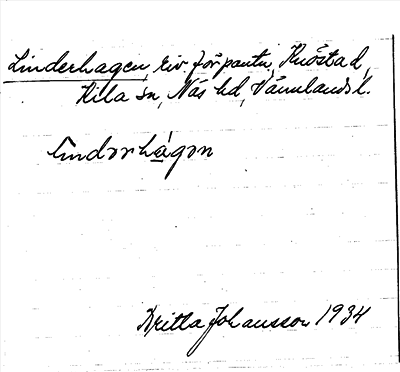 Linderhagen, riv. förpantn, Knöstad,
Kila sn, Näs hd, Värmlands l.
lìndərhàgən
Britta Johansson 1934